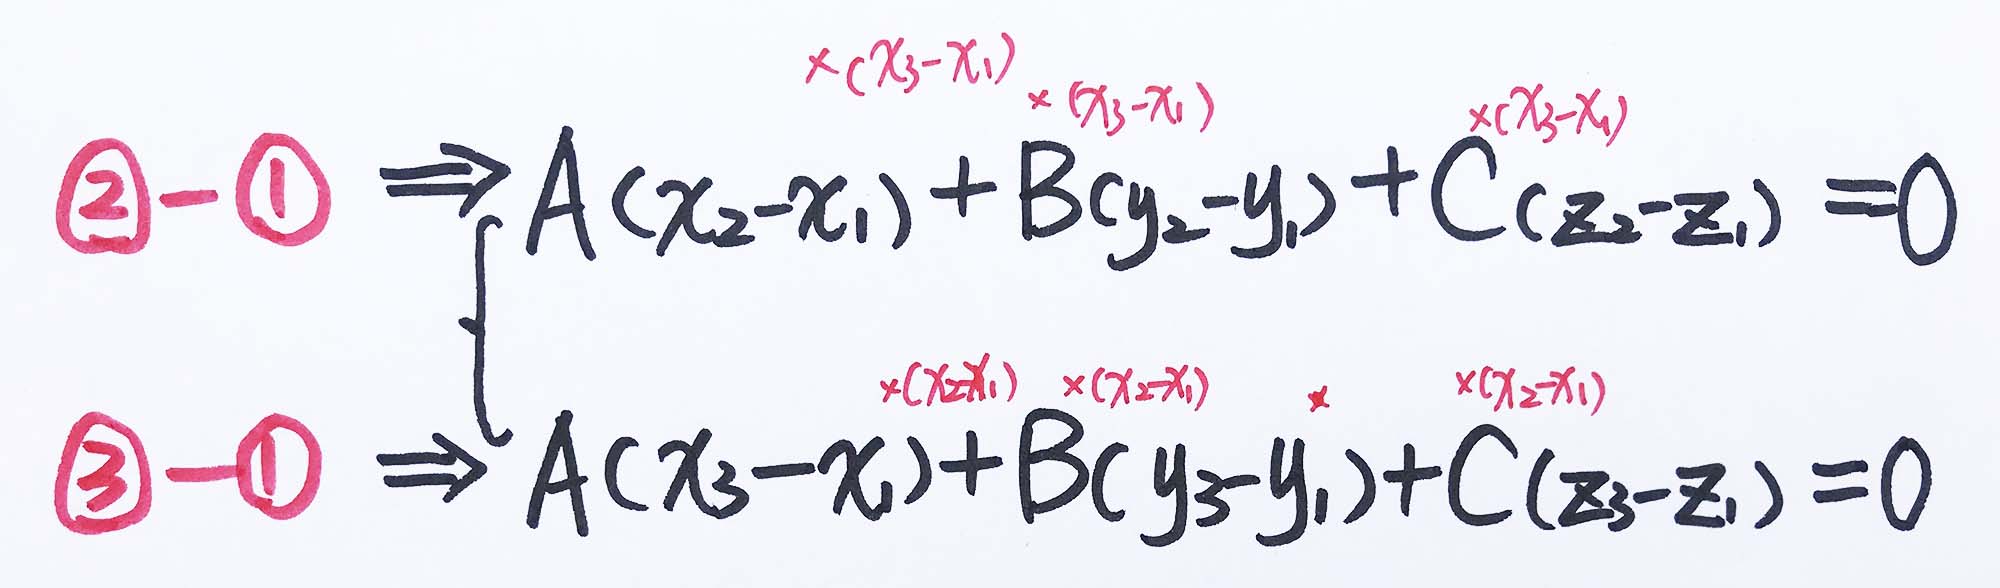 ×(x₃−x₁) ×(x₃−x₁) ×(x₃−x₁)
②−① ⇒ A(x₂−x₁)+B(y₂−y₁)+C(z₂−z₁)=0
×(x₂−x₁) ×(x₂−x₁) × ×(x₂−x₁)
③−① ⇒ A(x₃−x₁)+B(y₃−y₁)+C(z₃−z₁)=0